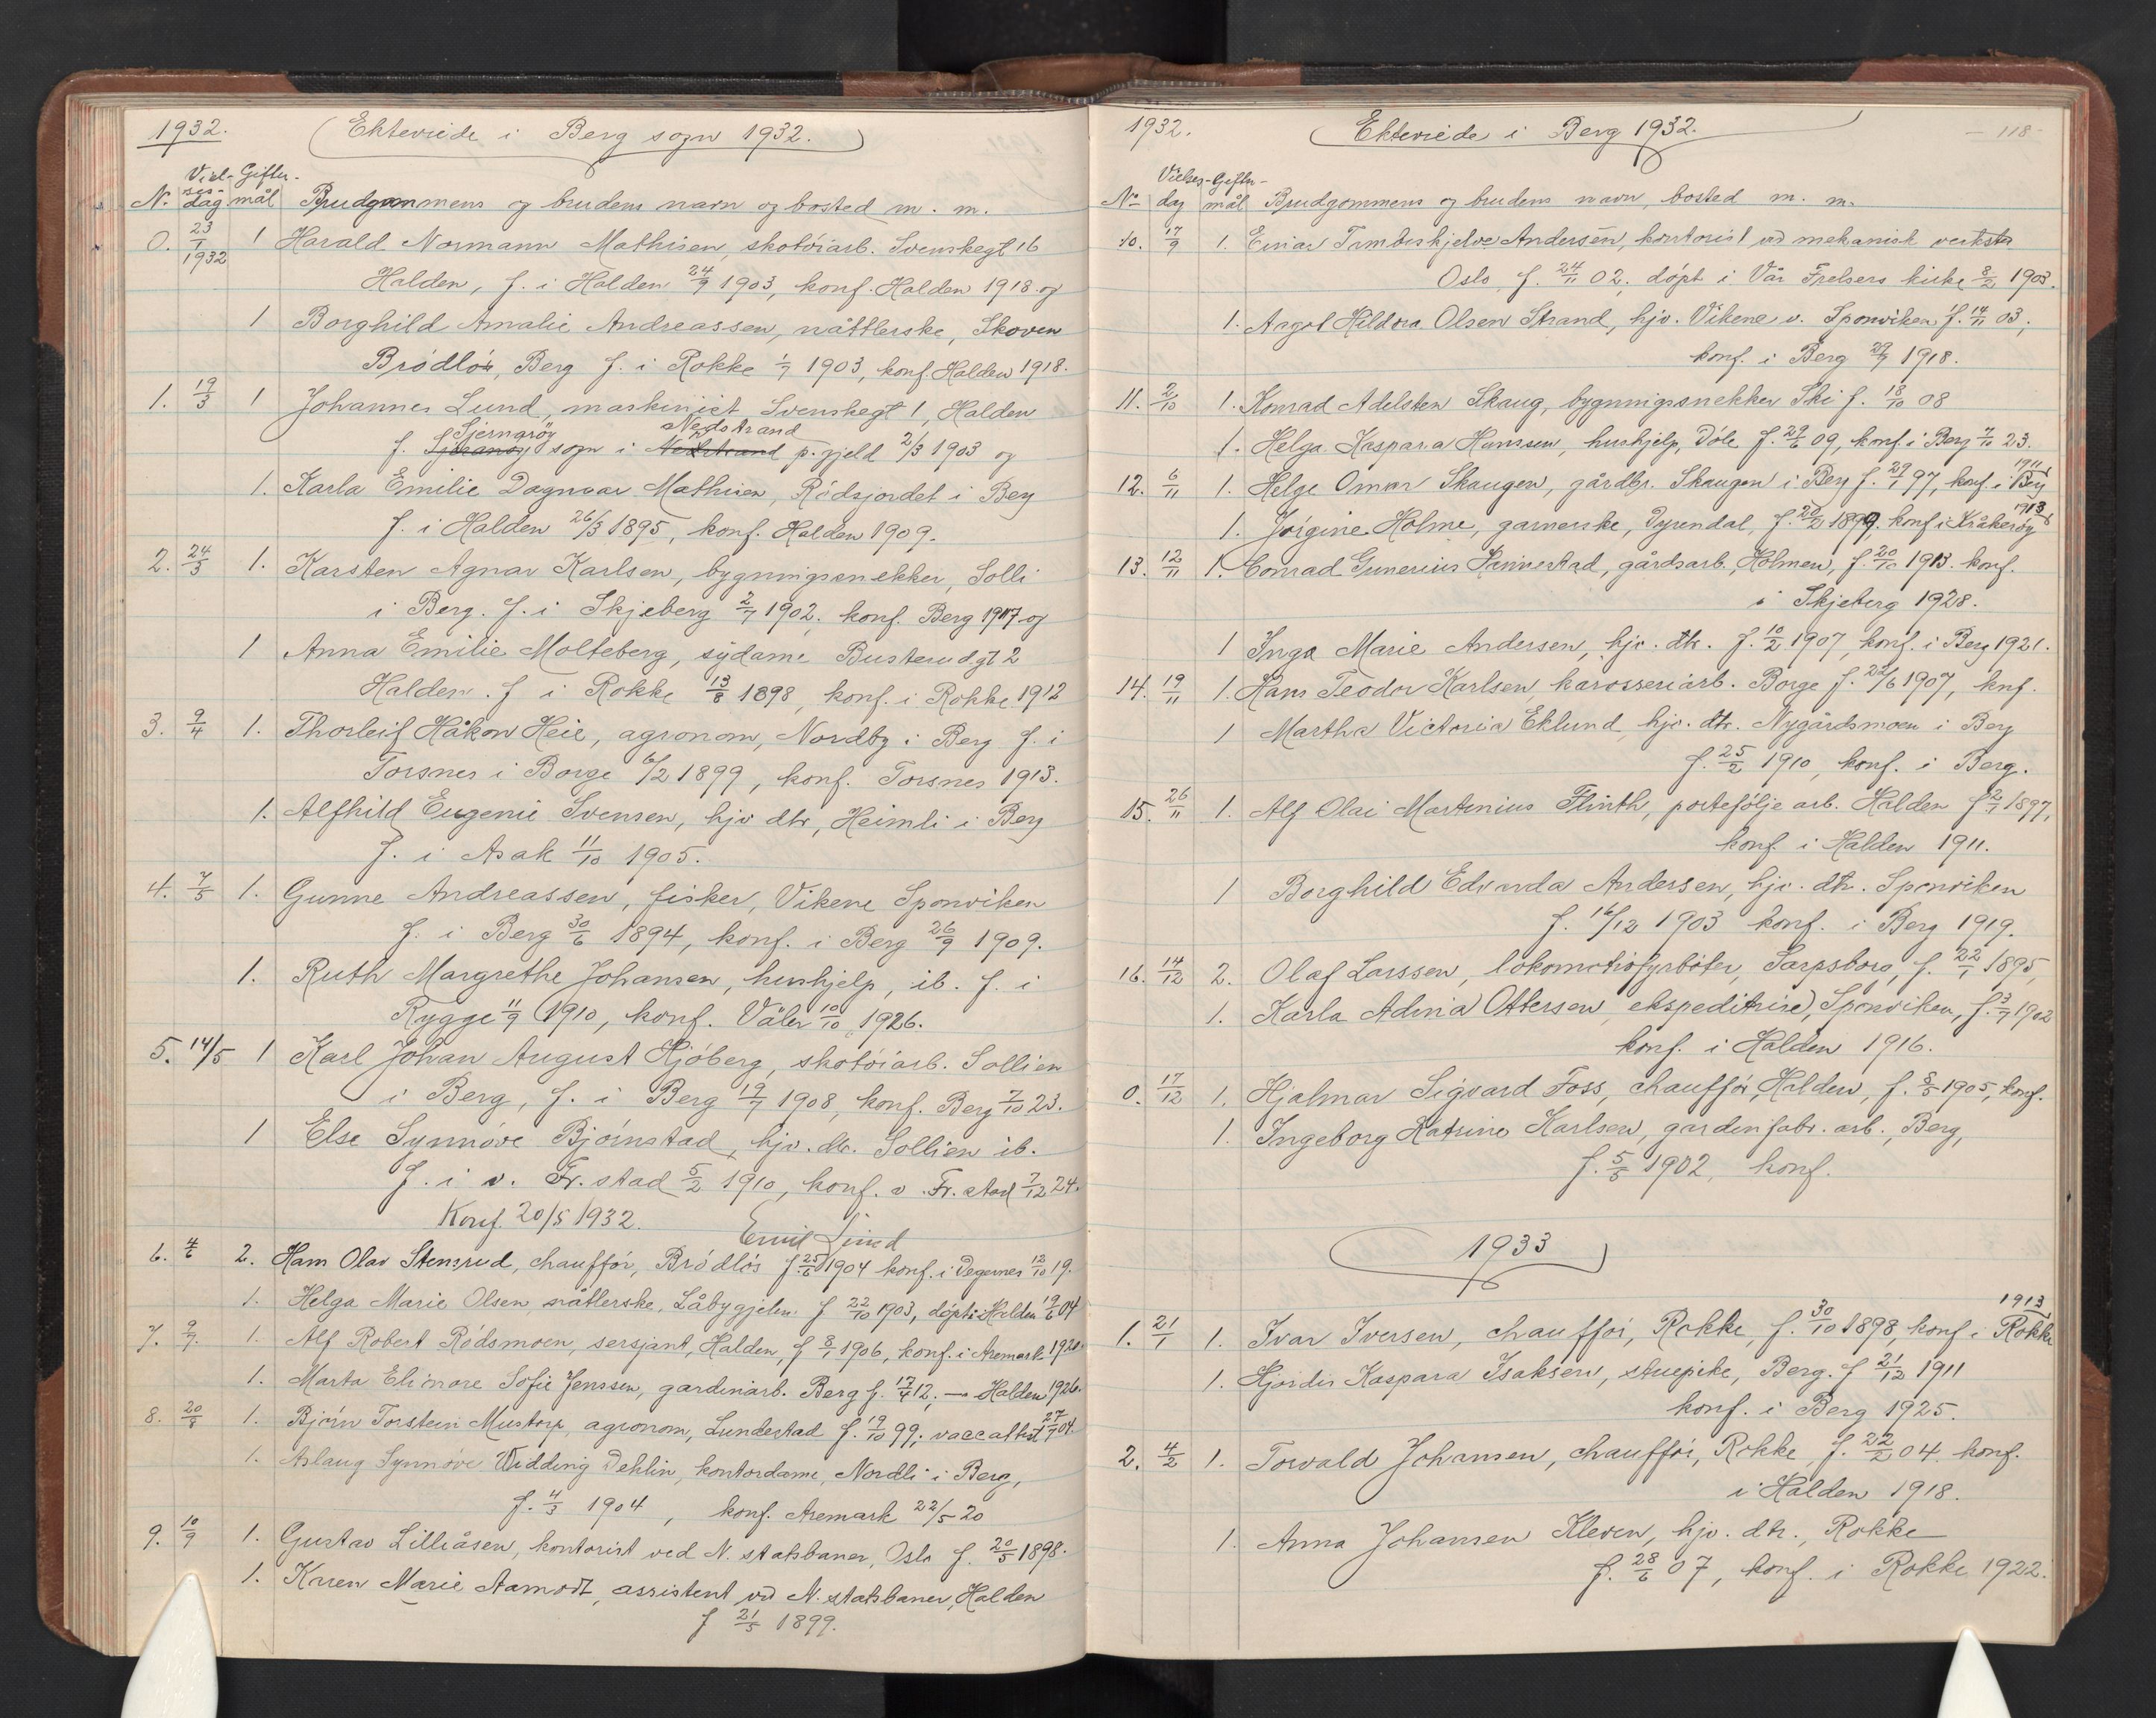 1932.
Ekteviede i Berg sogn 1932.
Viel- Gifter-
N. ses- dag mål Brudgommens og brudens navn og bosted m. m.
0. 23/1 1932 1 Harald Normann Mathisen, skotöiarb. Svenskegt 16
Halden, f. i Halden 24/9 1903, konf. Halden 1918 og
1 Borghild Amalie Andreassen, nåttlerske, Skoven
Brödlös, Berg f. i Rokke 1/7 1903, konf. Halden 1918.
1. 19/3 1 Johannes Lund, maskinist Svenskegt 1, Halden
Sjernaröy Nedstrand
f. sogn i p.gjeld 2/3 1903 og
1. Karla Emilie Dagmar Mathisen, Rödsjordet i Berg
f. i Halden 26/3 1895, konf. Halden 1909.
2. 24/3 1. Karsten Agnar Karlsen, bygningssnekker, Solli
i Berg. f. i Skjeberg 2/7 1902. konf. Berg 1917 og
1 Anna Emilie Molteberg, sydame Busterudgt 2
Halden. f i Rokke 13/8 1898, konf. i Rokke 1912
3. 9/4 1. Thorleif Håkon Heie, agronom, Nordby i Berg f. i
Torsnes i Borge 6/2 1899, konf. Torsnes 1913.
1. Alfhild Eugenie Svensen, hjv dtr, Heimli i Berg
f. i Asak 11/10 1905.
4. 7/5 1. Gunne Andreassen, fisker, Vikene Sponviken
f. i Berg 30/6 1894, konf. i Berg 26/9 1909.
1. Ruth Margrethe Johansen, hushjelp, ib. f. i
Rygge 11/9 1910, konf. Våler 10/10 1926.
5. 14/5 1 Karl Johan August Hjöberg, skotöiarb. Sollien
i Berg, f. i Berg 19/7 1908, konf. Berg 7/10 23.
1 Else Synnöve Björnstad, hjv. dtr. Sollien ib.
f. i v. Fr.stad 5/2 1910, konf. v. Fr.stad 7/12 24.
Konf. 20/5 1932. Emil Lind
6. 4/6 2. Hans Olav Stensrud, chafför, Brödlös f. 25/6 1904 konf. i Degernes 12/10 19.
1. Helga Marie Olsen nåttlerske, Låbygjelen f 22/10 1903, döpt i Halden 19/6 04
7. 9/7. 1. Alf Robert Rödsmoen, sersjant, Halden, f 8/1 1906, konf. i Aremark 1920.
1. Marta Elinore Sofie Jenssen, gardinarb. Berg f. 17/4 12, — Halden 1926.
8. 20/8 1. Björn Torstein Mustorp, agronom, Lundestad f. 19/10 99; vacc attest 27/7 04.
1. Aslaug Synnöve Widding Dehlin, kontordame, Nordli i Berg,
f. 4/3 1904, konf. Aremark 22/5 20
9. 10/9 1. Gustav Lilleåsen, kontorist ved N. statsbaner, Oslo f. 20/5 1898.
1. Karen Marie Aamodt, assistent vd N. statsbaner, Halden
f 21/5 1899.
1932. Ekteviede i Berg 1932. — 118
Vielses- Gifter-
No dag mål Brudgommens og brudens navn, bosted m. m.
10. 17/9 1. Einar Andersen, kontorist vd mekanisk verksted
Oslo, f. 24/11 02, döpt i Vår Frelsers kirke 8/2 1903.
1. Aagot Hildora Olsen Strand, hjv. Vikene v. Sponviken f. 14/11 03;
konf. i Berg 29/9 1918.
11. 2/10 1. Konrad Adelsten Skaug, bygningssnekker Ski f. 18/10 08
1. Helga Kaspara Hanssen, hushjelp, Döle f. 29/6 09, konf. i Berg 7/10 23.
12. 6/11 1. Helge Omar Skaugen, gårdbr. Skaugen i Berg f. 29/1 97, konf. i Berg 1911
1. Jörgine Holme, garnerske, Dyrendal, f. 20/2 1899, konf i Kråkeröy 1913
13. 12/11 1. Conrad Gunerius Sannestad, gårdsarb., Holmen, f. 20/10 1913. konf.
i Skjeberg 1928.
1 Inga Marie Andersen, hjv. dtr. f. 10/2 1907, konf. i Berg 1921.
14. 19/11 1. Hans Teodor Karlsen, karosseriarb. Borge f. 22/6 1907, konf.
1 Martha Victoria Eklund, hjv. dtr. Nygårdsmoen i Berg
f. 25/2 1910, konf. i Berg.
15. 26/11 1. Alf Olai Martinius Flinth, portefölje arb. Halden f 2/1 1897,
konf i Halden 1911.
1 Borghild Edvarda Andersen, hjv. dtr. Sponviken
f. 16/12 1903 konf. i Berg 1919.
16. 14/12 2. Olaf Larssen, lokomotivfyrböter, Sarpsborg, f. 22/1 1895,
1. Karla Adina Ottersen, ekspeditrise, Sponviken, f. 3/7 1902
konf. i Halden 1916.
0. 17/12 1. Hjalmar Sigvard Foss, chafför, Halden, f. 8/5 1905, konf.
1. Ingeborg Katrine Karlsen, gardinfabr. arb., Berg,
f. 5/5 1902, konf.
1933
1. 21/1 1. Ivar Iversen, chafför, Rokke, f. 30/10 1898, konf i Rokke 1913
1. Hjördis Kaspara Isaksen, stuepike, Berg. f 21/12 1911
konf. i Berg 1925.
2. 4/2 1. Torvald Johansen, chafför, Rokke, f. 22/2 04. konf.
i Halden 1918.
1. Anna Johansen Kleven, hjv. dtr., Rokke
f. 28/6 07, konf. i Rokke 1922.